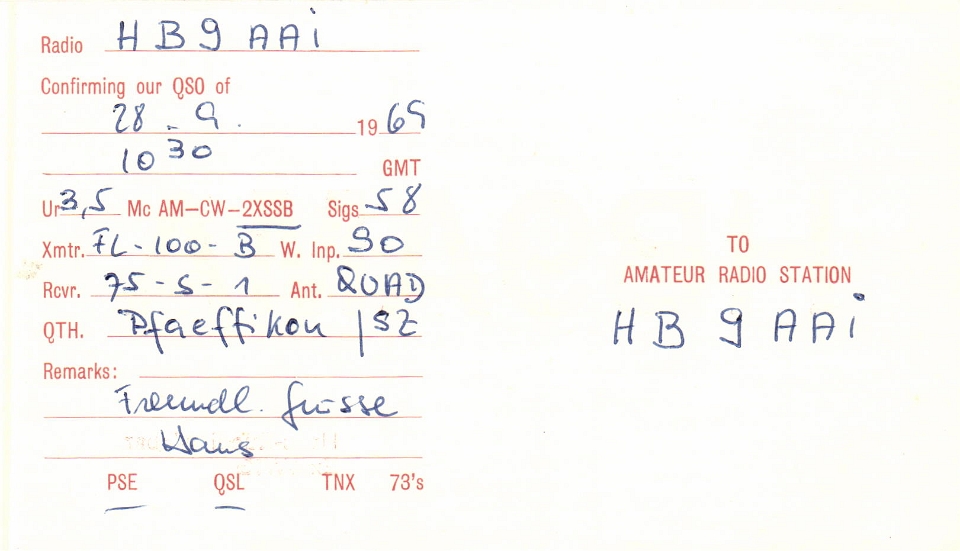 Radio HB9AAi
Confirming our QSO of
28. 9. 1969
10 30 GMT
Ur 3,5 Mc AM-CW-2XSSB Sigs 58
Xmtr. FL-100-B W. Inp. 90
Rcvr. 75-S-1 Ant. QUAD
QTH. Pfaeffikon /SZ
Remarks:
Freundl. Grüsse
Hans
PSE QSL TNX 73's
TO
AMATEUR RADIO STATION
HB9AAi